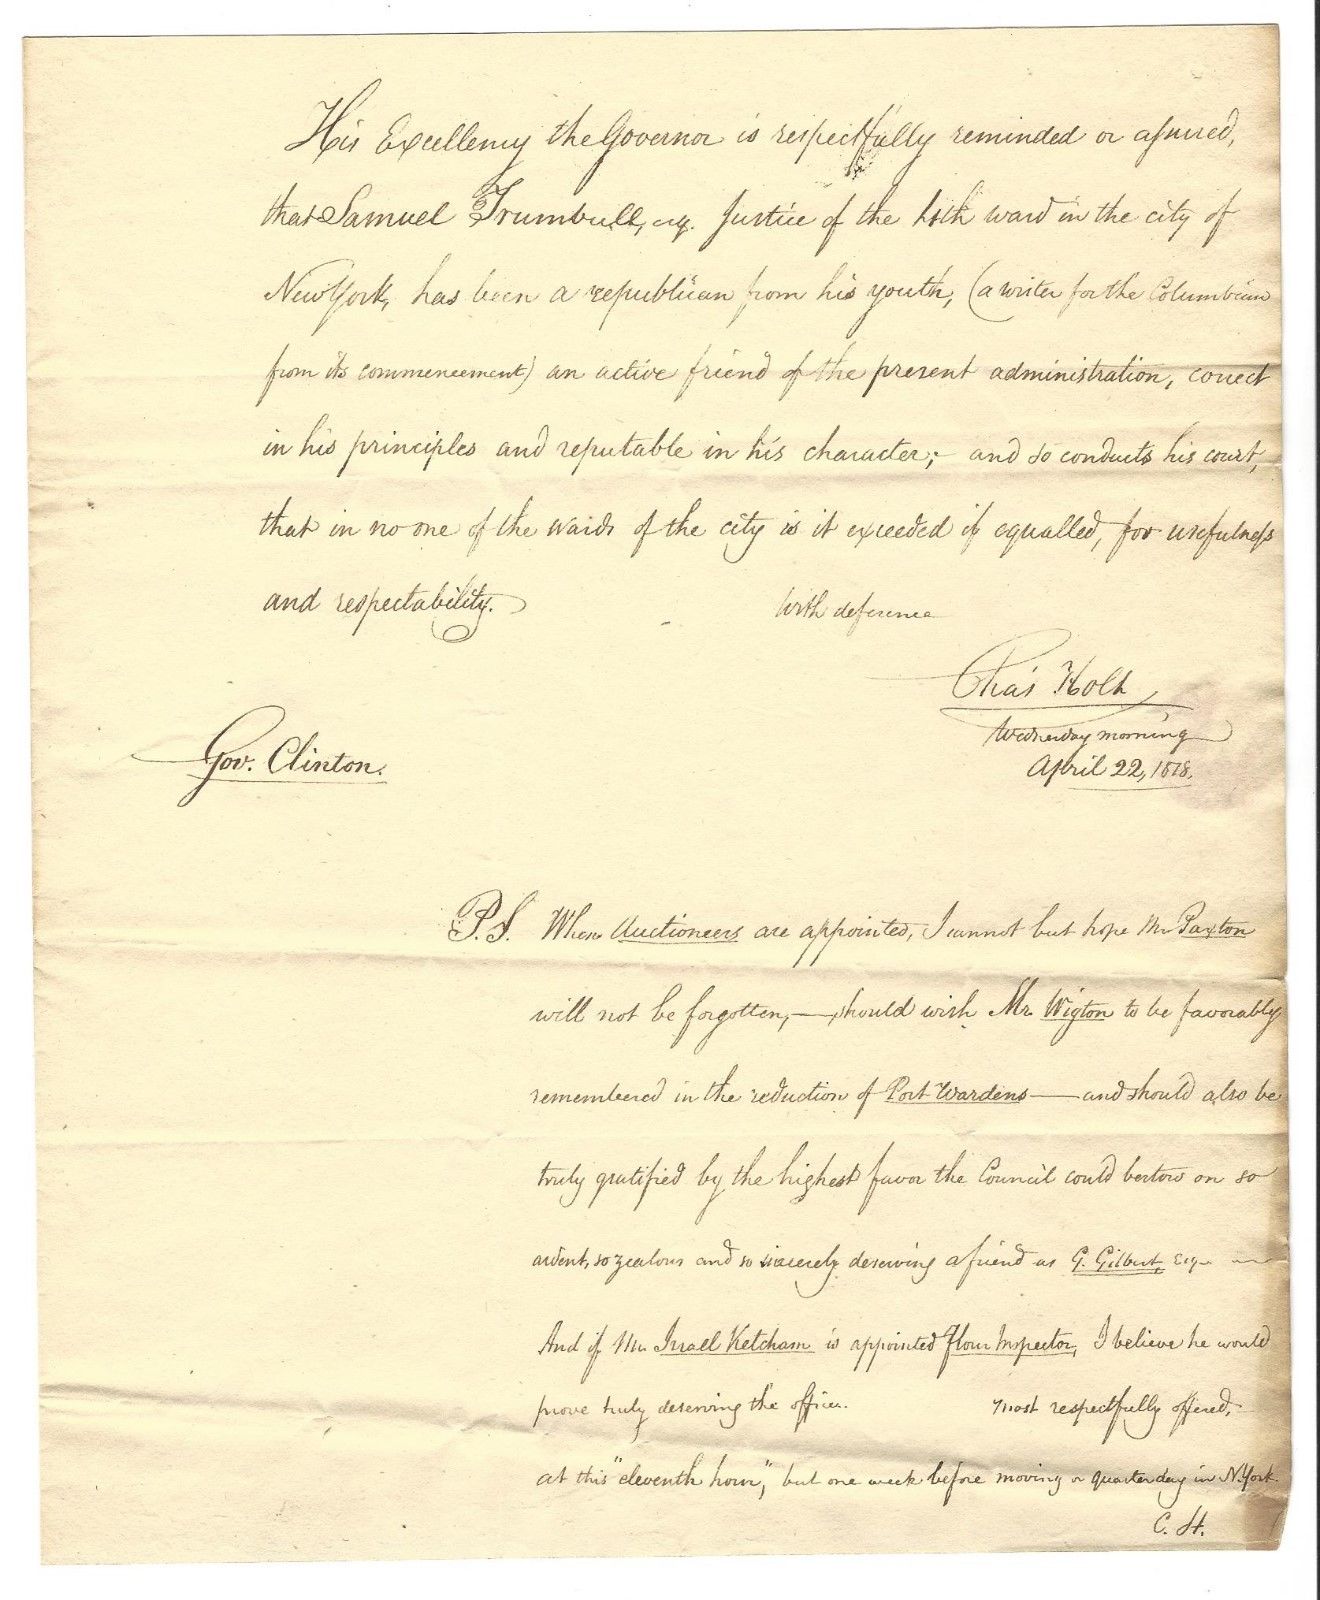 His Excellency the Governor is respectfully reminded or assured,
that Samuel Trumbull, esq. Justice of the ward in the city of
New York, has been a republican from his youth, (a writer for the Columbian
from its commencement) an active friend of the present administration, correct
in his principles and reputable in his character;- and so conducts his court,
that in no one of the wards of the city is it exceeded if equalled, for usefulness
and respectability. With deference
Cha's Holt
Wednesday morning
April 22, 1818.
Gov. Clinton.
P.S. When Auctioneers are appointed, I cannot but hope Mr Paxton
will not be forgotten,— should wish Mr. Wigton to be favorably
remembered in the reduction of Port Wardens — and should also be
truly gratified by the highest favor the Council could bestow on so
ardent, so zealous and so sincerely deserving a friend as G. Gilbert, Esq.
And if Mr Israel Ketcham is appointed flour Inspector, I believe he would
prove truly deserving the office. Most respectfully offered,-
at this "eleventh hour", but one week before moving or quarter day in N.York.
C. H.